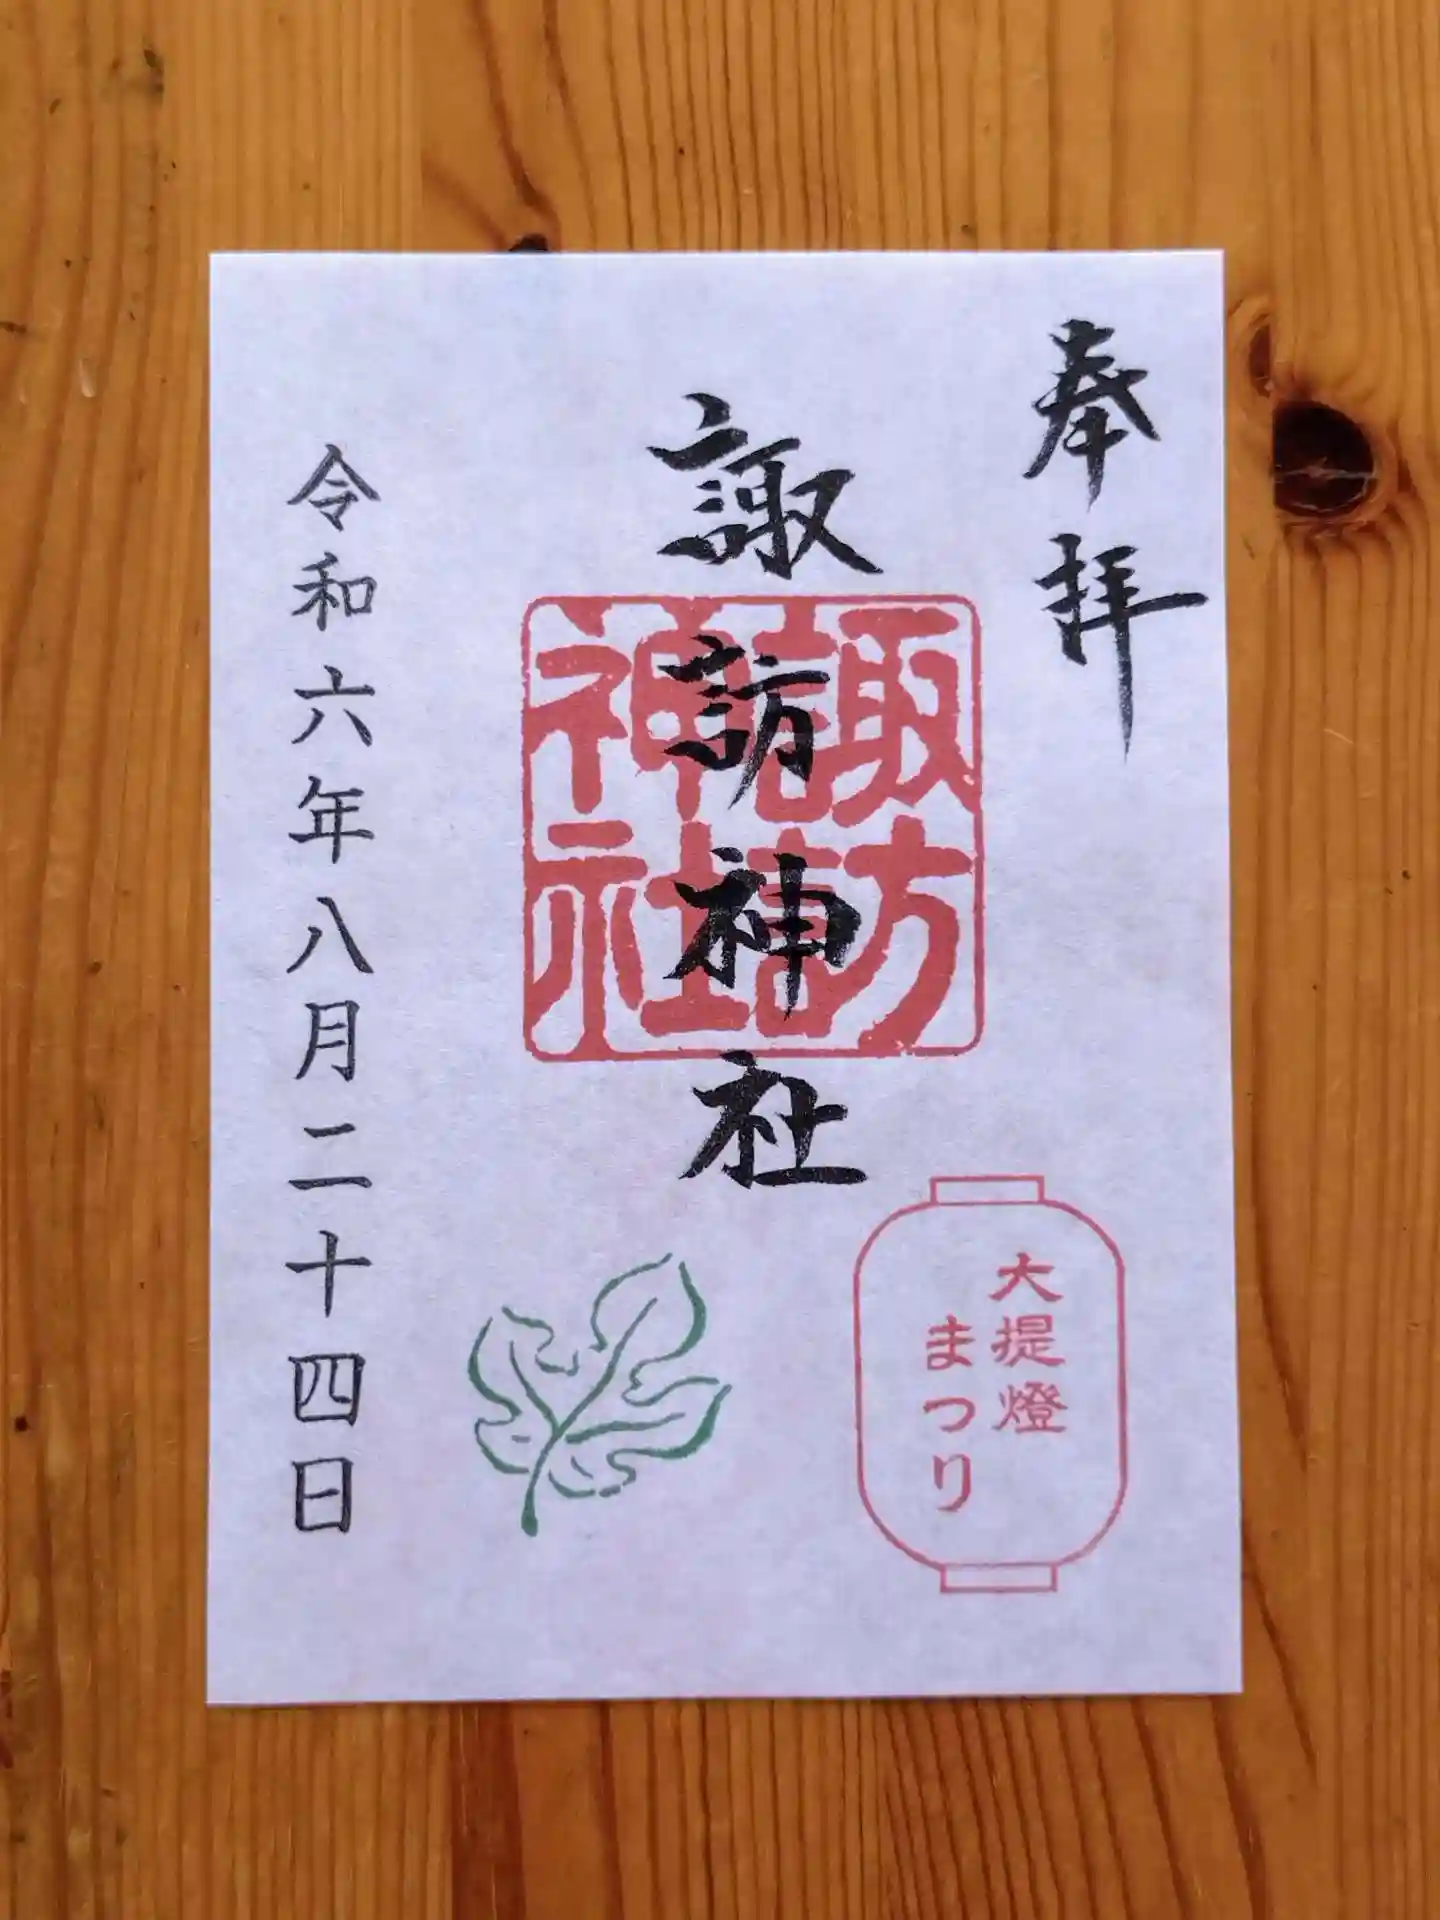 奉拝
諏訪神社
諏訪神社
大提燈
まつり
令和六年八月二十四日